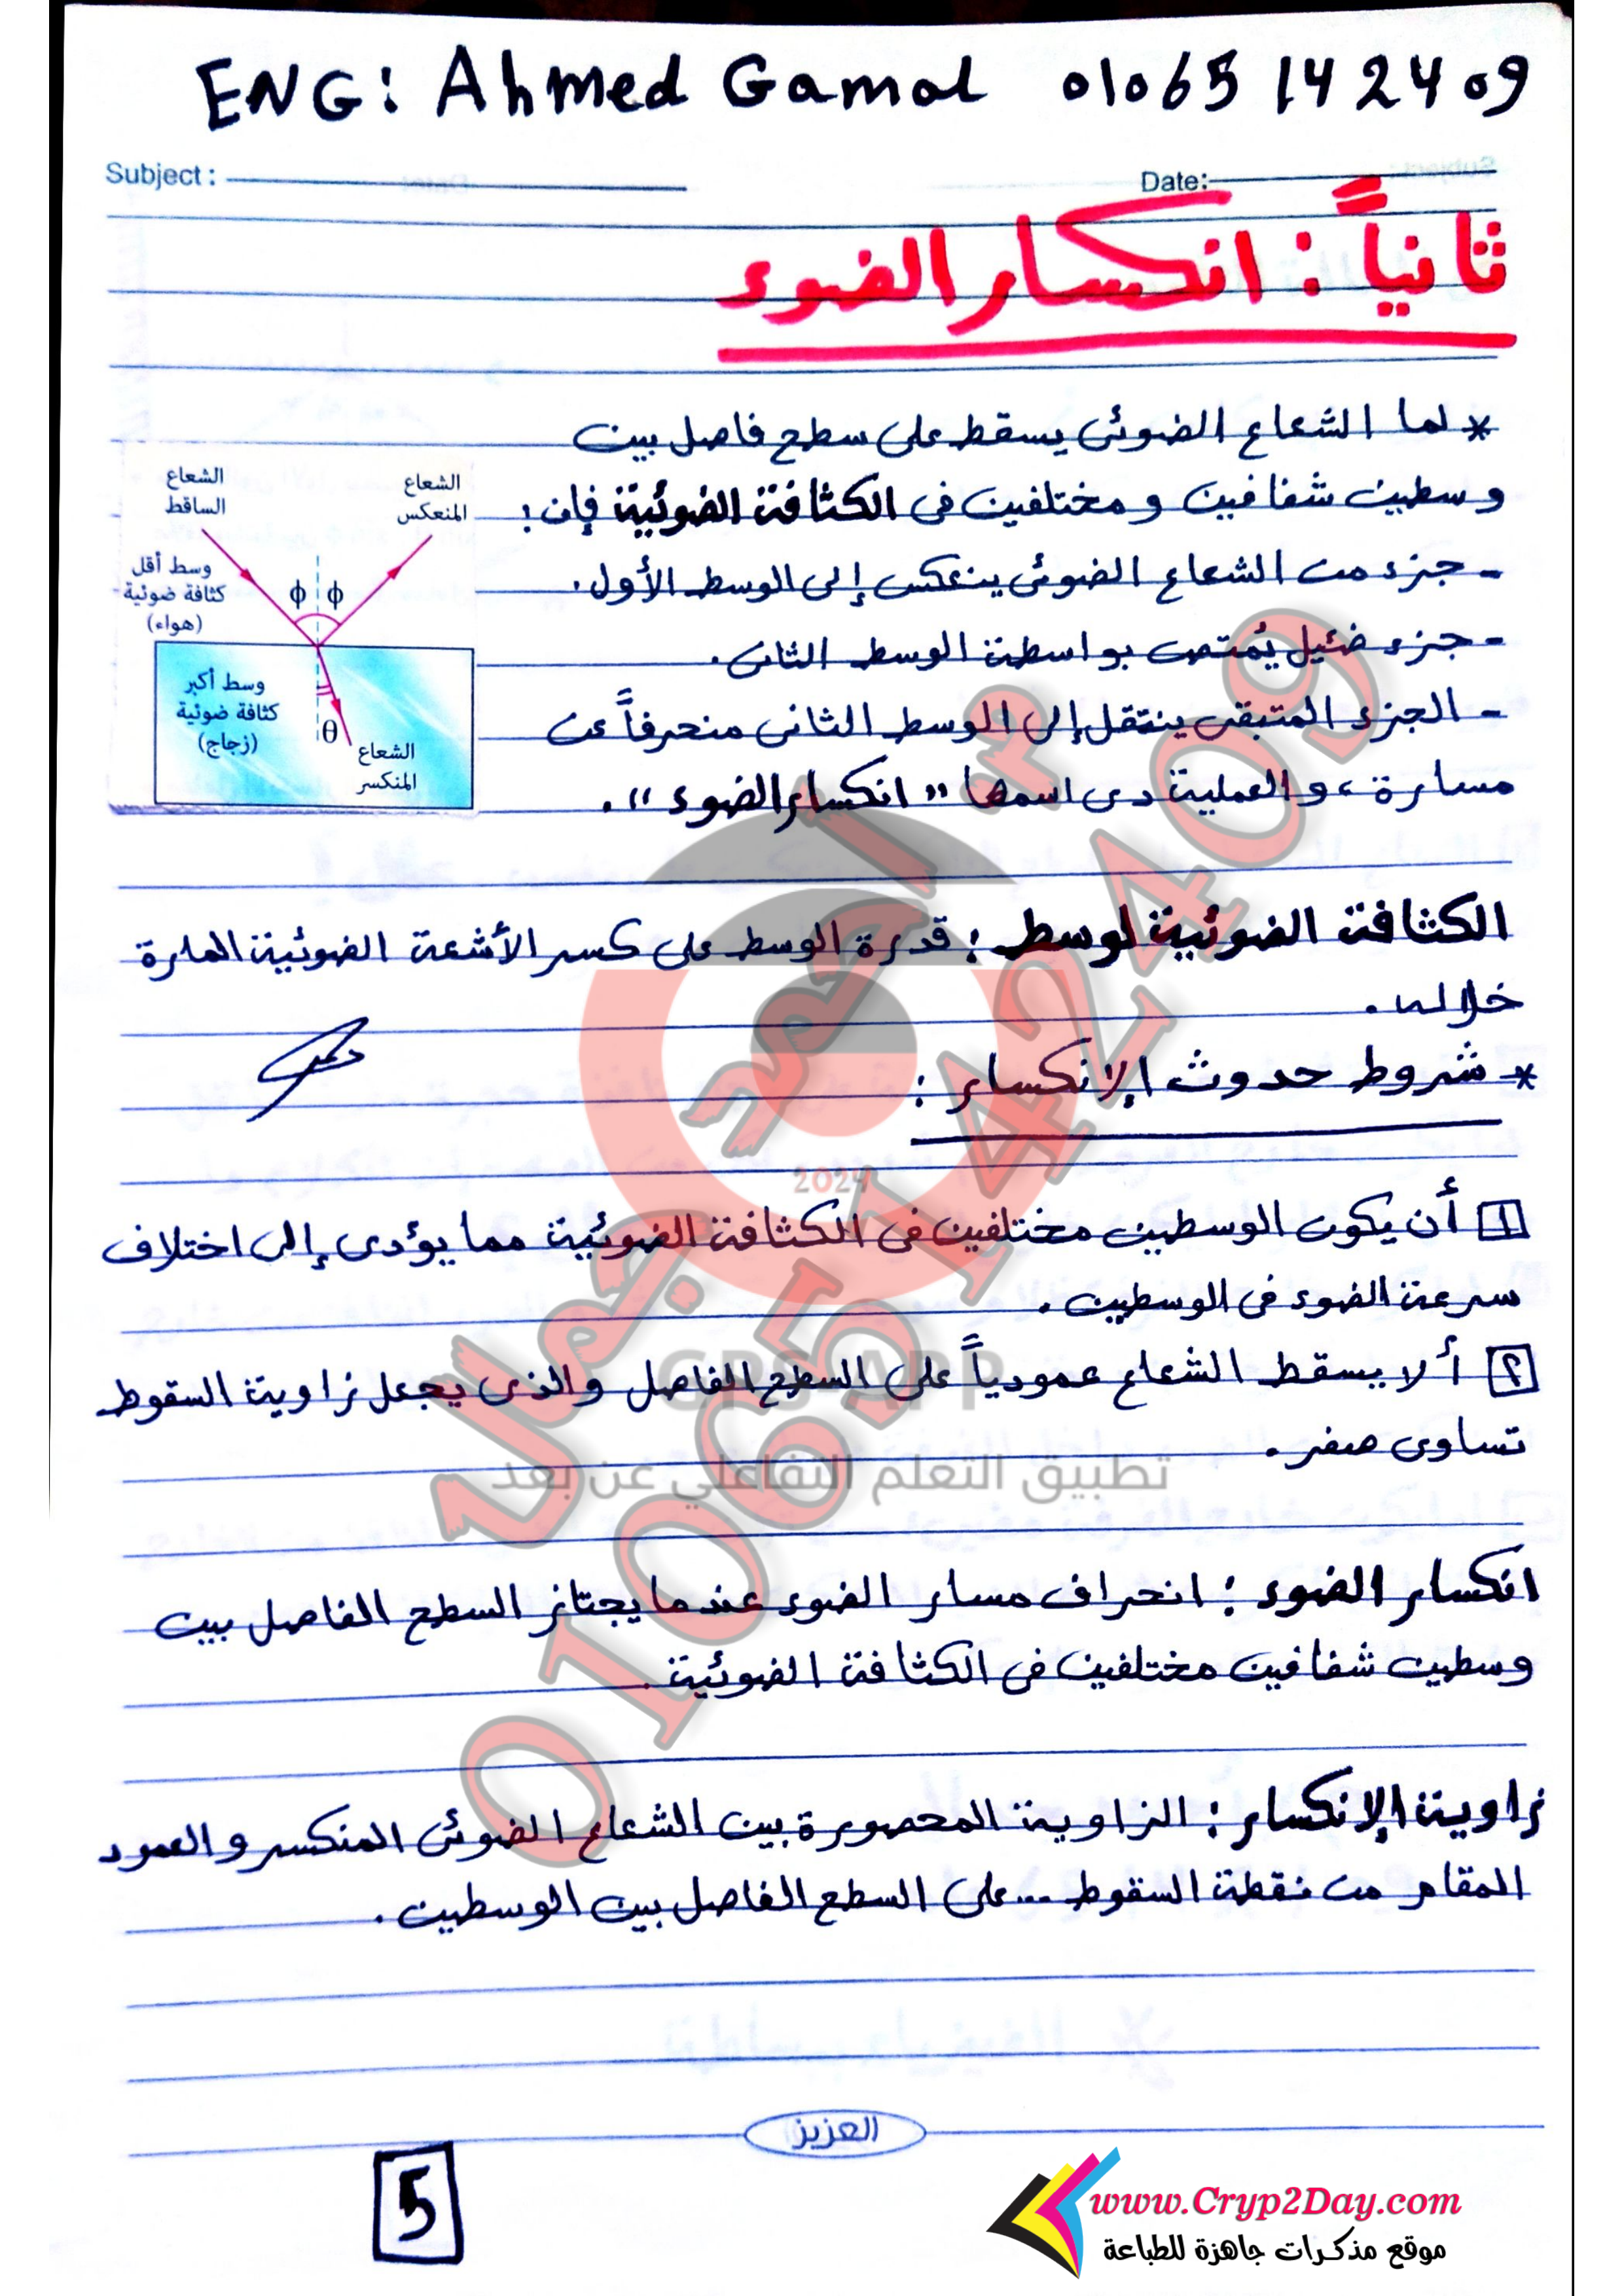 ENG: Ahmed Gamal 01065142409
Subject :
Date:
ثانياً : انكسار الضوء
* لما الشعاع الضوئى يسقط على سطح فاصل بين
وسطين شفافين و مختلفين فى الكثافة الضوئية فإن :
- جزء من الشعاع الضوئى ينعكس إلى الوسط الأول .
- جزء ضئيل يُمتص بواسطة الوسط الثانى .
- الجزء المتبقى ينتقل إلى الوسط الثانى منحرفاً عن
مسارة ، و العملية دى اسمها " انكسار الضوء " .
الشعاع
الساقط
الشعاع
المنعكس
وسط أقل
كثافة ضوئية
(هواء)
ϕ ϕ
وسط أكبر
كثافة ضوئية
(زجاج)
θ
الشعاع
المنكسر
الكثافة الضوئية لوسط : قدرة الوسط على كسر الأشعة الضوئية المارة
خلاله .
* شروط حدوث الإنكسار :
١ أن يكون الوسطين مختلفين فى الكثافة الضوئية مما يؤدى إلى اختلاف
سرعة الضوء فى الوسطين .
٢ ألا يسقط الشعاع عمودياً على السطح الفاصل والذى يجعل زاوية السقوط
تساوى صفر .
انكسار الضوء : انحراف مسار الضوء عندما يجتاز السطح الفاصل بين
وسطين شفافين مختلفين فى الكثافة الضوئية .
زاوية الإنكسار : الزاوية المحصورة بين الشعاع الضوئى المنكسر و العمود
المقام من نقطة السقوط ... على السطح الفاصل بين الوسطين .
العزيز
5
www.Cryp2Day.com
موقع مذكرات جاهزة للطباعة
2024
GPS APP
تطبيق التعلم التفاعلي عن بعد
م احمد جمال
01065142409